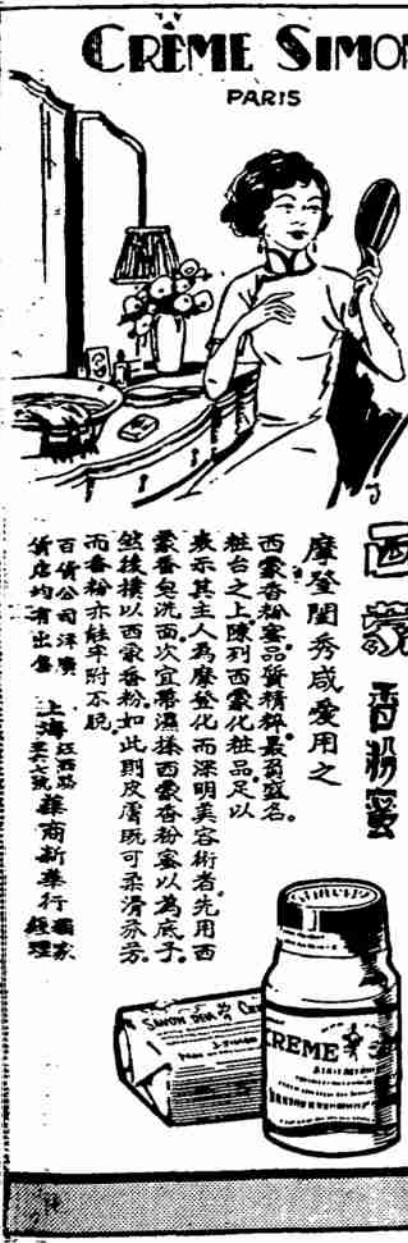 CRÈME SIMON
PARIS
西蒙香粉蜜
摩登閨秀咸愛用之
西蒙香粉蜜品質精粹。最負盛名。
粧台之上陳列西蒙化粧品。足以
表示其主人為摩登化而深明美容術者。先用西
蒙香皂洗面。次宜帶濕搽西蒙香粉蜜以為底子。
然後撲以西蒙香粉。如此則皮膚既可柔滑芬芳。
而香粉亦能牢附不脫。
百貨公司洋廣
貨店均有出售
上海江西路
華商新華行
獨家
經理
SAVON
CREME